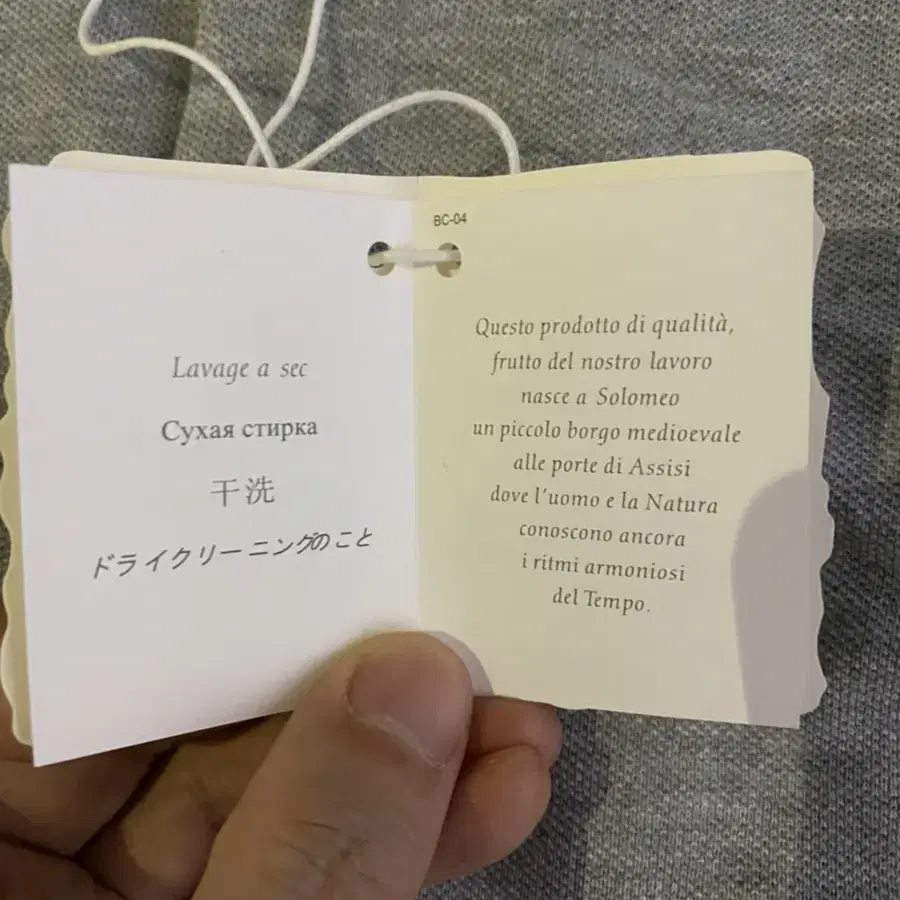 Lavage a sec
Сухая стирка
干洗
ドライクリーニングのこと
BC-04
Questo prodotto di qualità,
frutto del nostro lavoro
nasce a Solomeo
un piccolo borgo medioevale
alle porte di Assisi
dove l'uomo e la Natura
conoscono ancora
i ritmi armoniosi
del Tempo.